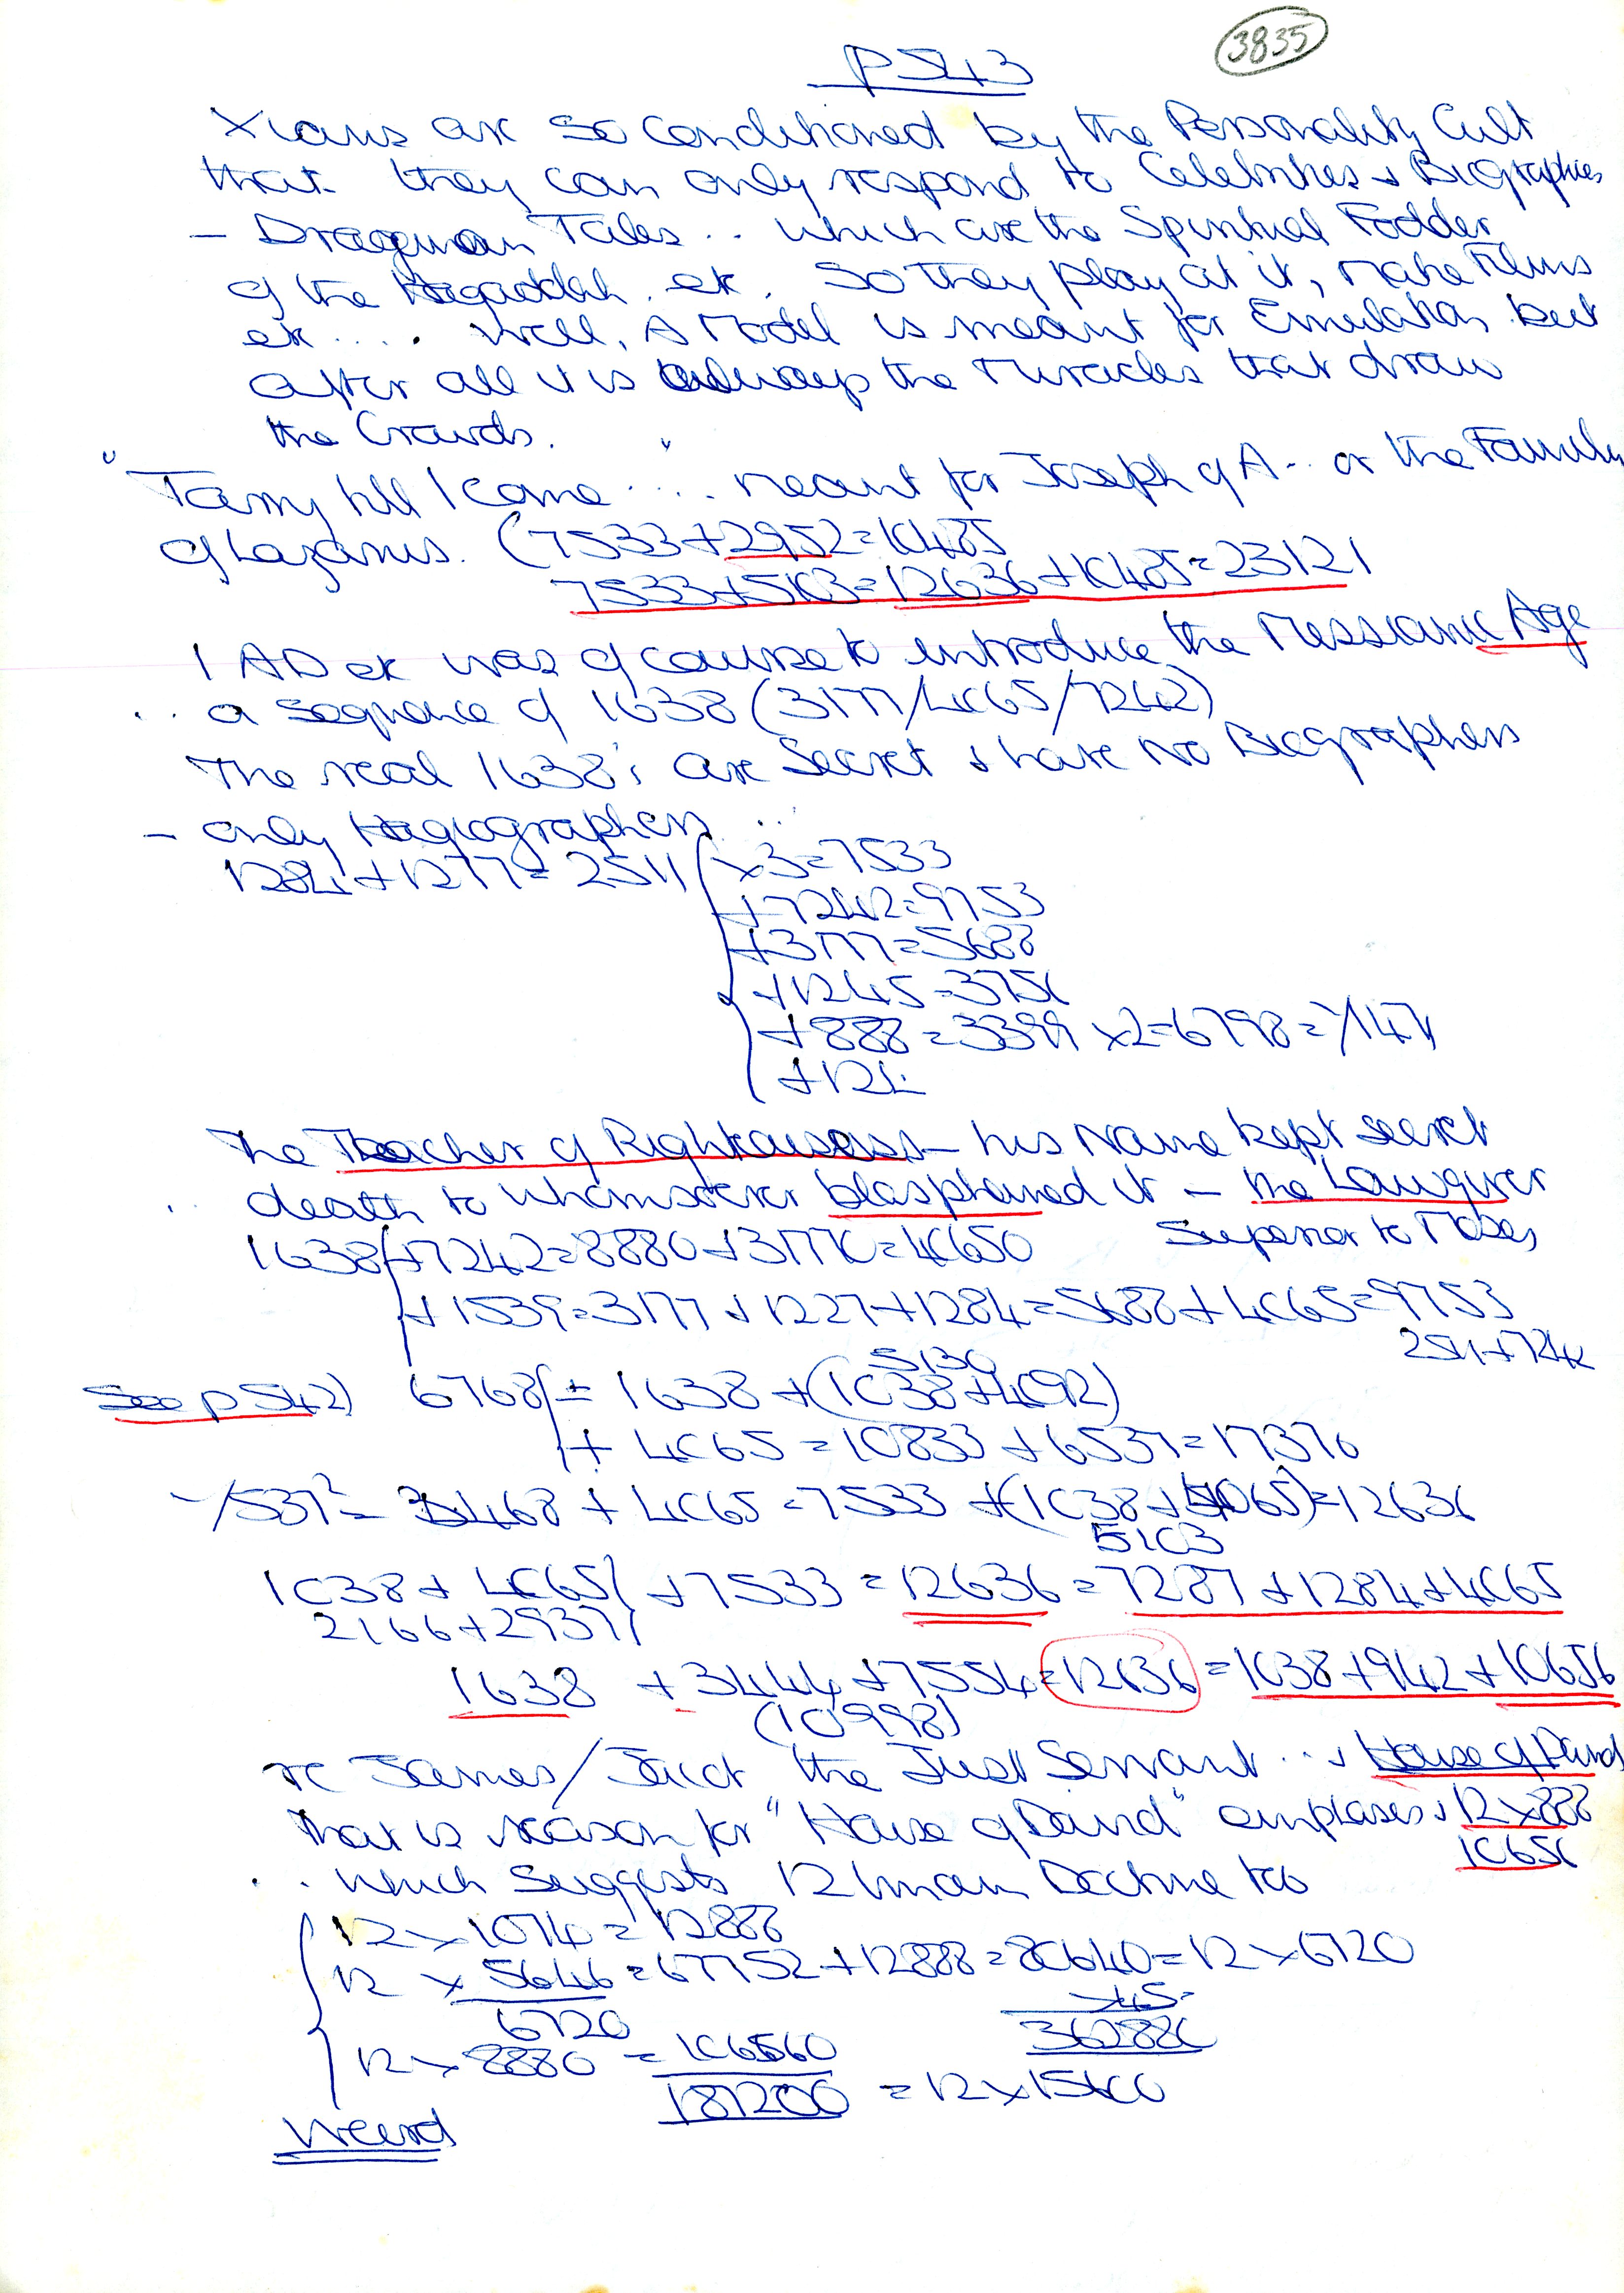 3835
p543
Xians are so conditioned by the Personality Cult
that they can only respond to Celebrities & Biographies
- Dragoman Tales .. which are the Spiritual Fodder
of the Haggadah etc. So they play at it, make Films
etc .... Well, A Model is meant for Emulation but
after all it is always the Miracles that draw
the Crowds.
"Tarry till I come ...." meant for Joseph of A .. or the Family
of Lazarus. (7533+2952=10485
7533+5103=12636+10485=23121
1 AD etc was of course to introduce the Messianic Age
.. a sequence of 1638 (3177/4065/7242)
The real 1638's are Secret & have No Biographers
- only Hagiographers ...
1284+1277=2511 ( x3=7533
+7242=9753
+3177=5688
+1245=3756
+888=3399 x2=6798=
+124
The Teacher of Righteousness - his Name kept secret
.. death to whomsoever blasphemed it - the Lawgiver
Superior to Moses
1638(+7242=8880+31770=40650
+1539=3177+1227+1284=5688+4065=9753
2511+7242
5130
See p542) 6768(= 1638+(1038+4092)
+ 4065=10833+6537=17370
√537²= 3468+4065=7533+(1038+4065)=12636
5103
1038+4065)+7533=12636=7287+1284+4065
2166+2937)
1638+3444+7554=12636=1038+942+10656
(10998)
re James/Jacob the Just Servant ... & House of David
that is reason for "House of David" emphases & 12x888
10656
.. which suggests 12 Imam Doctrine too
12x1074=12888
12x5646=67752+12888=80640=12x6720
6720
x45=
362880
12x8880=106560
187200=12x15600
Weird